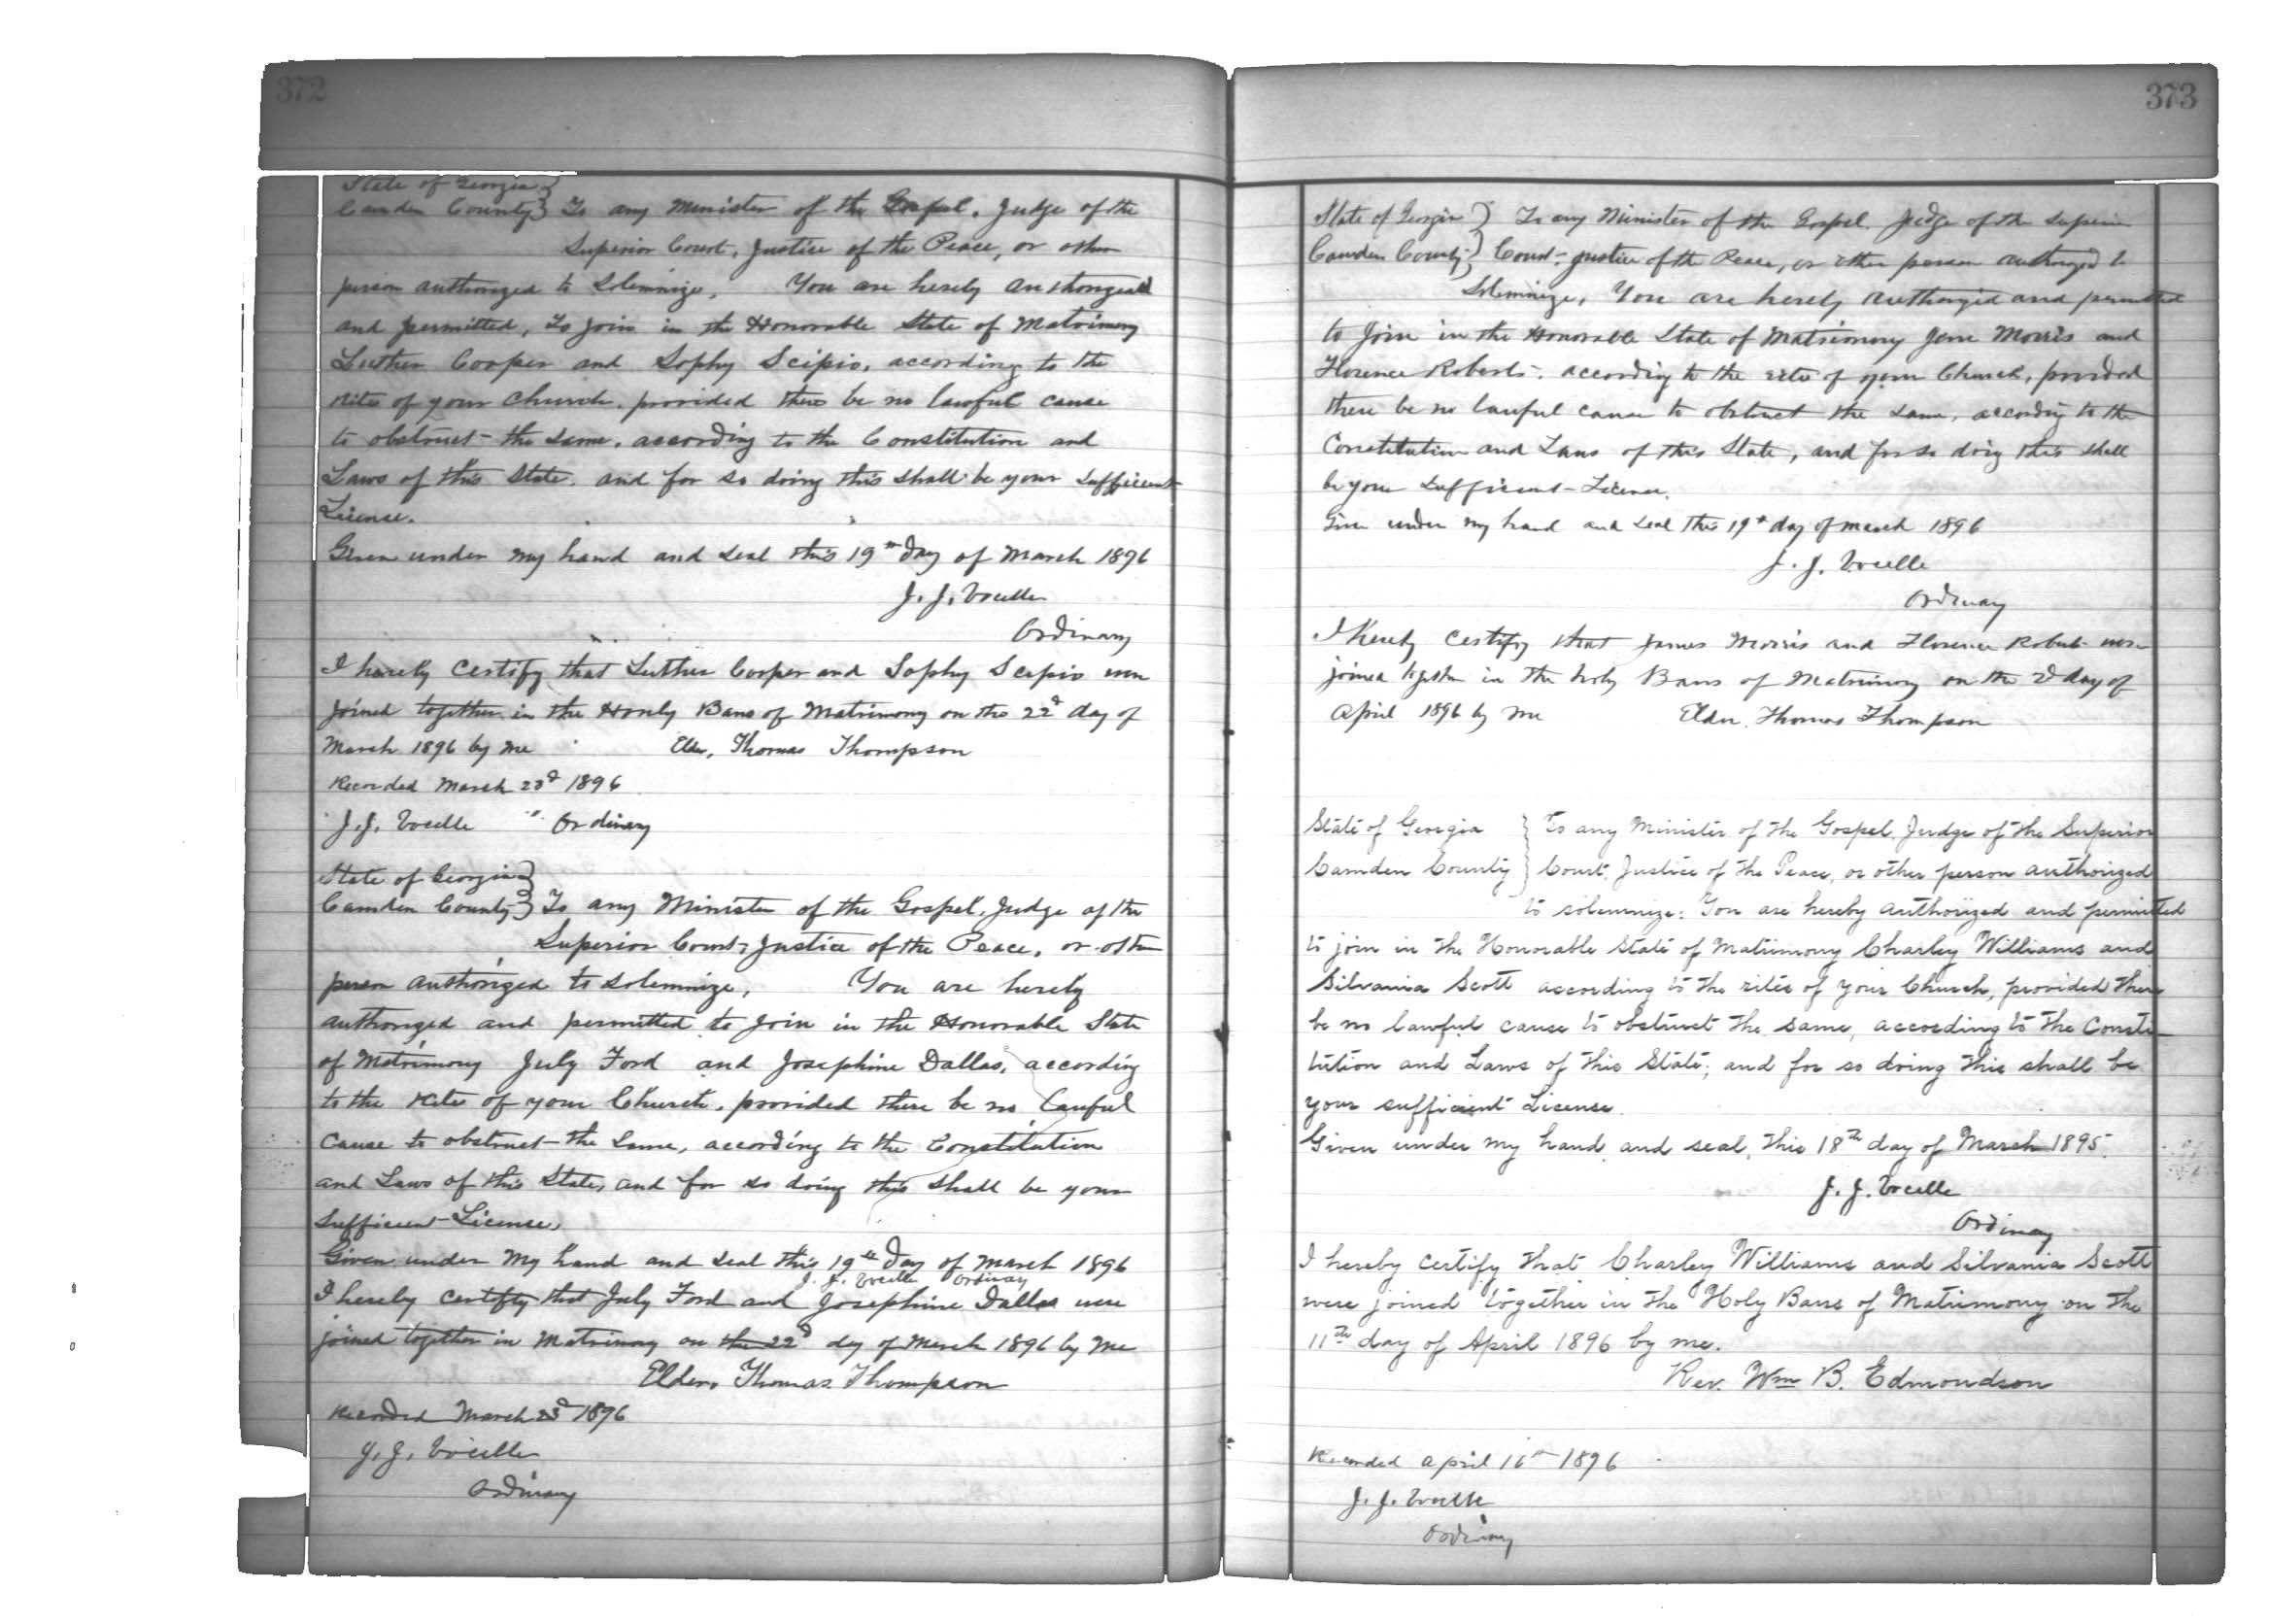 372
State of Georgia
Camden County } To any Minister of the Gospel, Judge of the
Superior Court, Justice of the Peace, or other
person authorized to Solemnize, You are hereby authorized
and permitted, to join in the Honorable State of Matrimony
Luther Cooper and Sophy Scipio, according to the
rites of your Church, provided there be no lawful cause
to obstruct the same, according to the Constitution and
Laws of this State, and for so doing this shall be your sufficient
License.
Given under my hand and seal this 19th day of March 1896
J. J. Vocelle
Ordinary
I hereby certify that Luther Cooper and Sophy Scipio were
joined together in the Honly Bans of Matrimony on the 22d day of
March 1896 by me Elder, Thomas Thompson
Recorded March 23d 1896
J. J. Vocelle Ordinary
State of Georgia
Camden County } To any Minister of the Gospel, Judge of the
Superior Court, Justice of the Peace, or other
person authorized to solemnize, You are hereby
authorized and permitted to join in the Honorable State
of Matrimony July Ford and Josephine Dallas, according
to the rites of your Church, provided there be no lawful
cause to obstruct the same, according to the Constitution
and Laws of this State, and for so doing this shall be your
sufficient License,
Given under my hand and seal this 19th day of March 1896
J. J. Vocelle Ordinary
I hereby certify that July Ford and Josephine Dallas were
joined together in Matrimony on the 22d day of March 1896 by me
Elder, Thomas Thompson
Recorded March 23d 1896
J. J. Vocelle
Ordinary
373
State of Georgia } To any Minister of the Gospel, Judge of the Superior
Camden County } Court, Justice of the Peace, or other person authorized to
Solemnize, You are hereby authorized and permitted
to join in the Honorable State of Matrimony Jane Morris and
Florence Roberts, according to the rites of your Church, provided
there be no lawful cause to obstruct the same, according to the
Constitution and Laws of this State, and for so doing this shall
be your sufficient License.
Given under my hand and seal this 19th day of March 1896
J. J. Vocelle
Ordinary
I hereby certify that James Morris and Florence Roberts were
joined together in the holy Bans of Matrimony on the 2d day of
April 1896 by me Elder, Thomas Thompson
State of Georgia } To any Minister of the Gospel, Judge of the Superior
Camden County } Court, Justice of the Peace, or other person authorized
to solemnize: You are hereby authorized and permitted
to join in the Honorable State of Matrimony Charley Williams and
Silvania Scott according to the rites of your Church, provided there
be no lawful cause to obstruct the same, according to the Consti-
tution and Laws of this State; and for so doing this shall be
your sufficient License.
Given under my hand and seal, this 18th day of March 1895.
J. J. Vocelle
Ordinary
I hereby certify that Charley Williams and Silvania Scott
were joined together in the Holy Bans of Matrimony on the
11th day of April 1896 by me.
Rev. Wm B. Edmondson
Recorded April 16th 1896
J. J. Vocelle
Ordinary